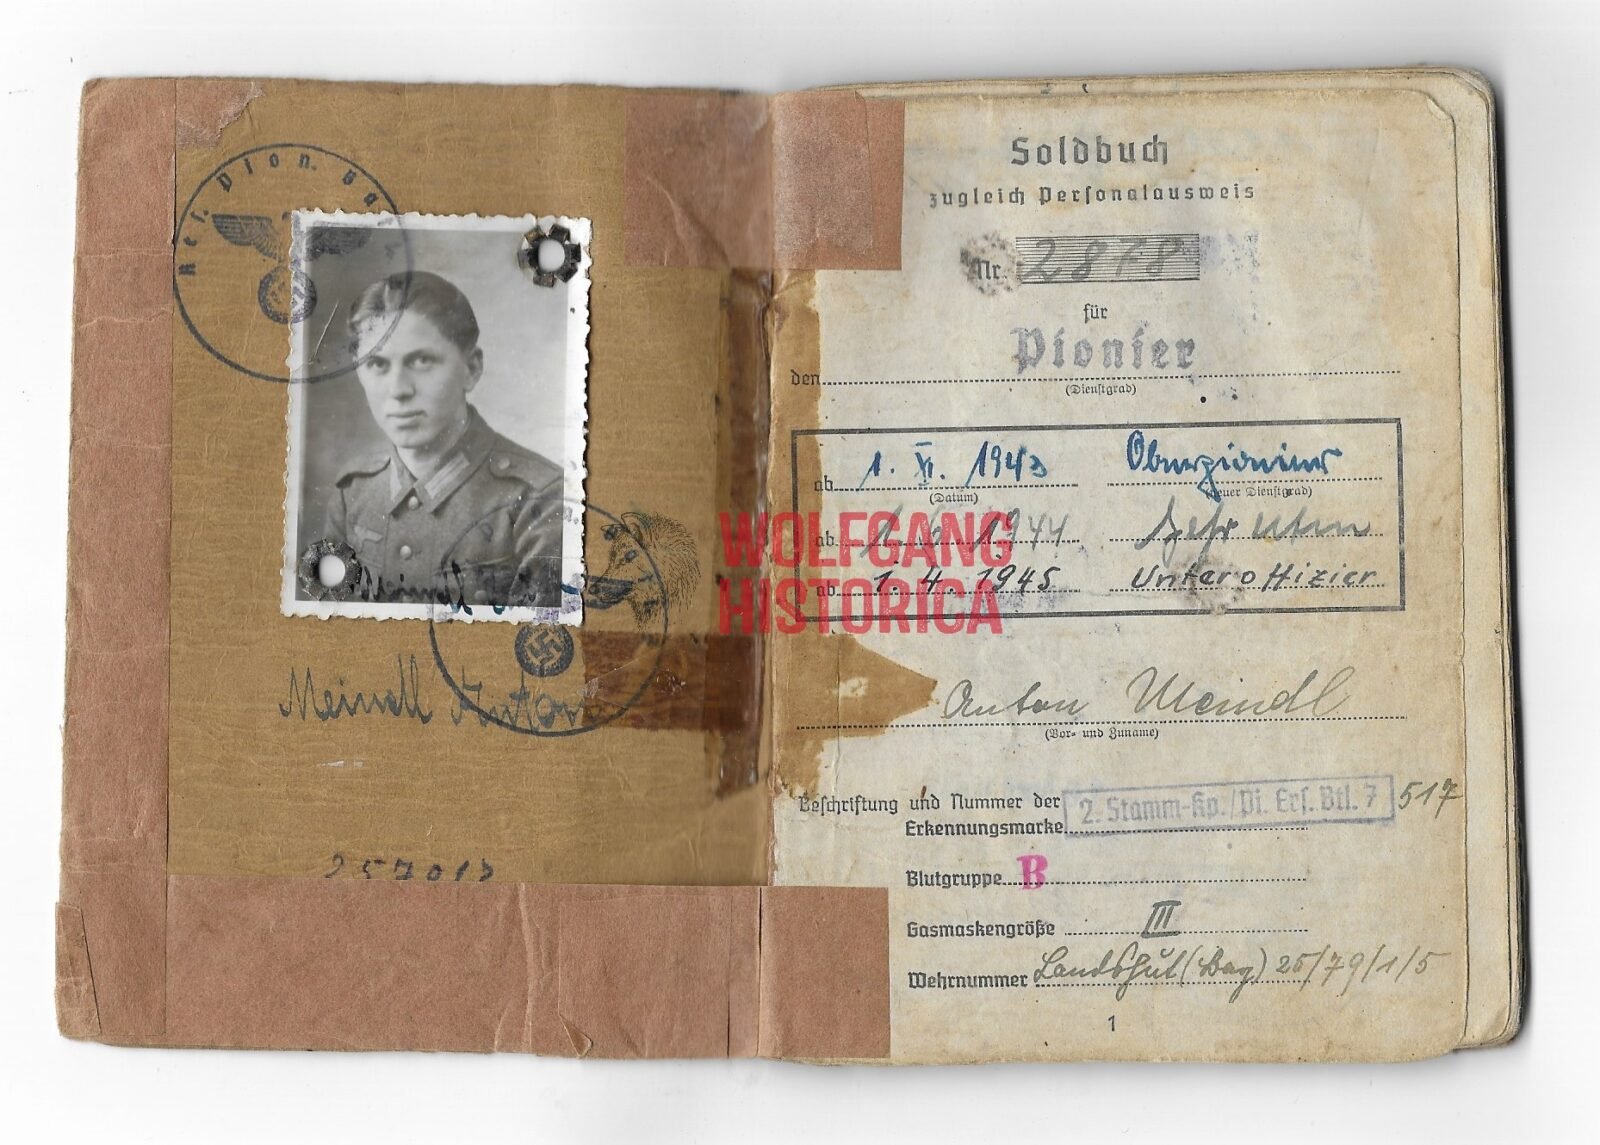 Res. Pion. Ba
Meindl Anton
257013
Soldbuch
zugleich Personalausweis
Nr. 2878
für
den Pionier
(Dienstgrad)
ab 1. XI. 1943 Oberpionier
(Datum) (neuer Dienstgrad)
ab 1944
ab 1. 4. 1945 Unteroffizier
WOLFGANG
HISTORICA
Anton Meindl
(Vor- und Zuname)
Beschriftung und Nummer der
Erkennungsmarke 2. Stamm-Kp./Pi. Ers. Btl. 7 517
Blutgruppe B
Gasmaskengröße III
Wehrnummer Landshut (Bay) 25/79/1/5
1